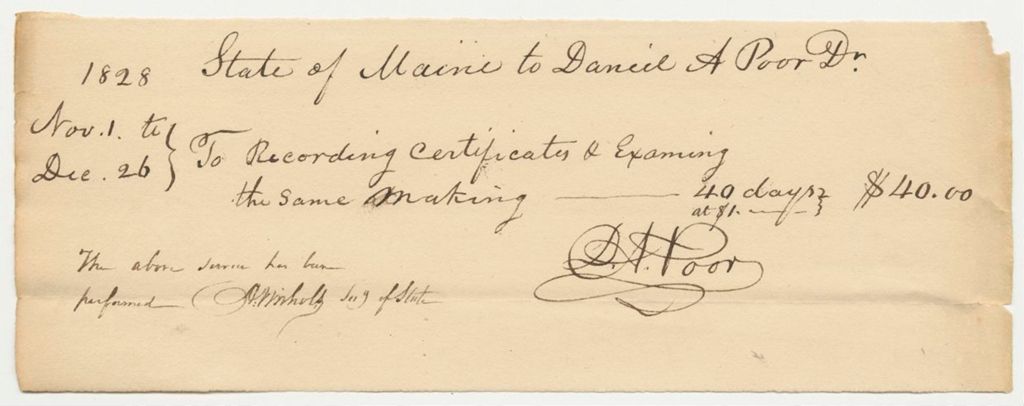 1828 State of Maine to Daniel A Poor Dr.
Nov. 1. to
Dec. 26 } To Recording Certificates & Examing
the same making —— 40 days } $40.00
at $1. ——
D. A. Poor
The above service has been
performed A. Nichols Secy of State